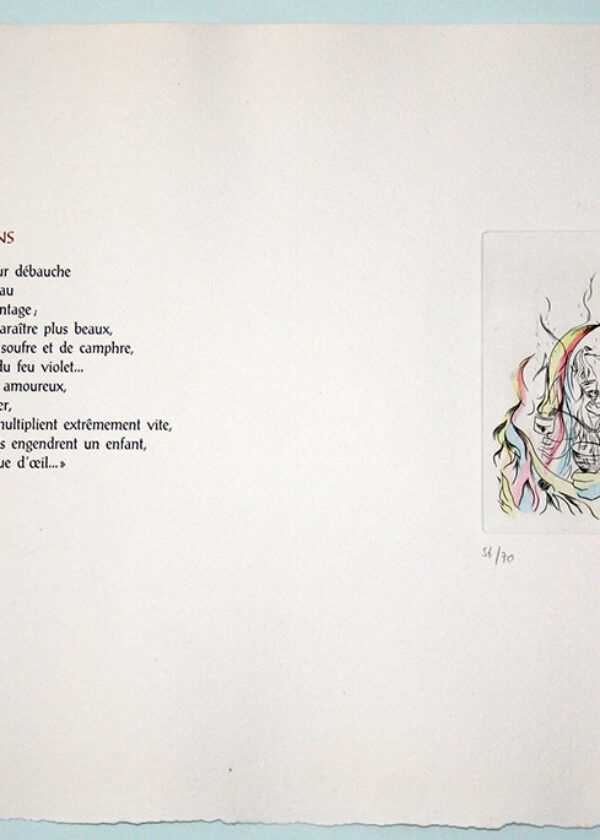 NS
ur débauche
au
ntage;
araître plus beaux,
soufre et de camphre,
du feu violet...
amoureux,
er,
multiplient extrêmement vite,
s engendrent un enfant,
ue d'œil...»
58/70